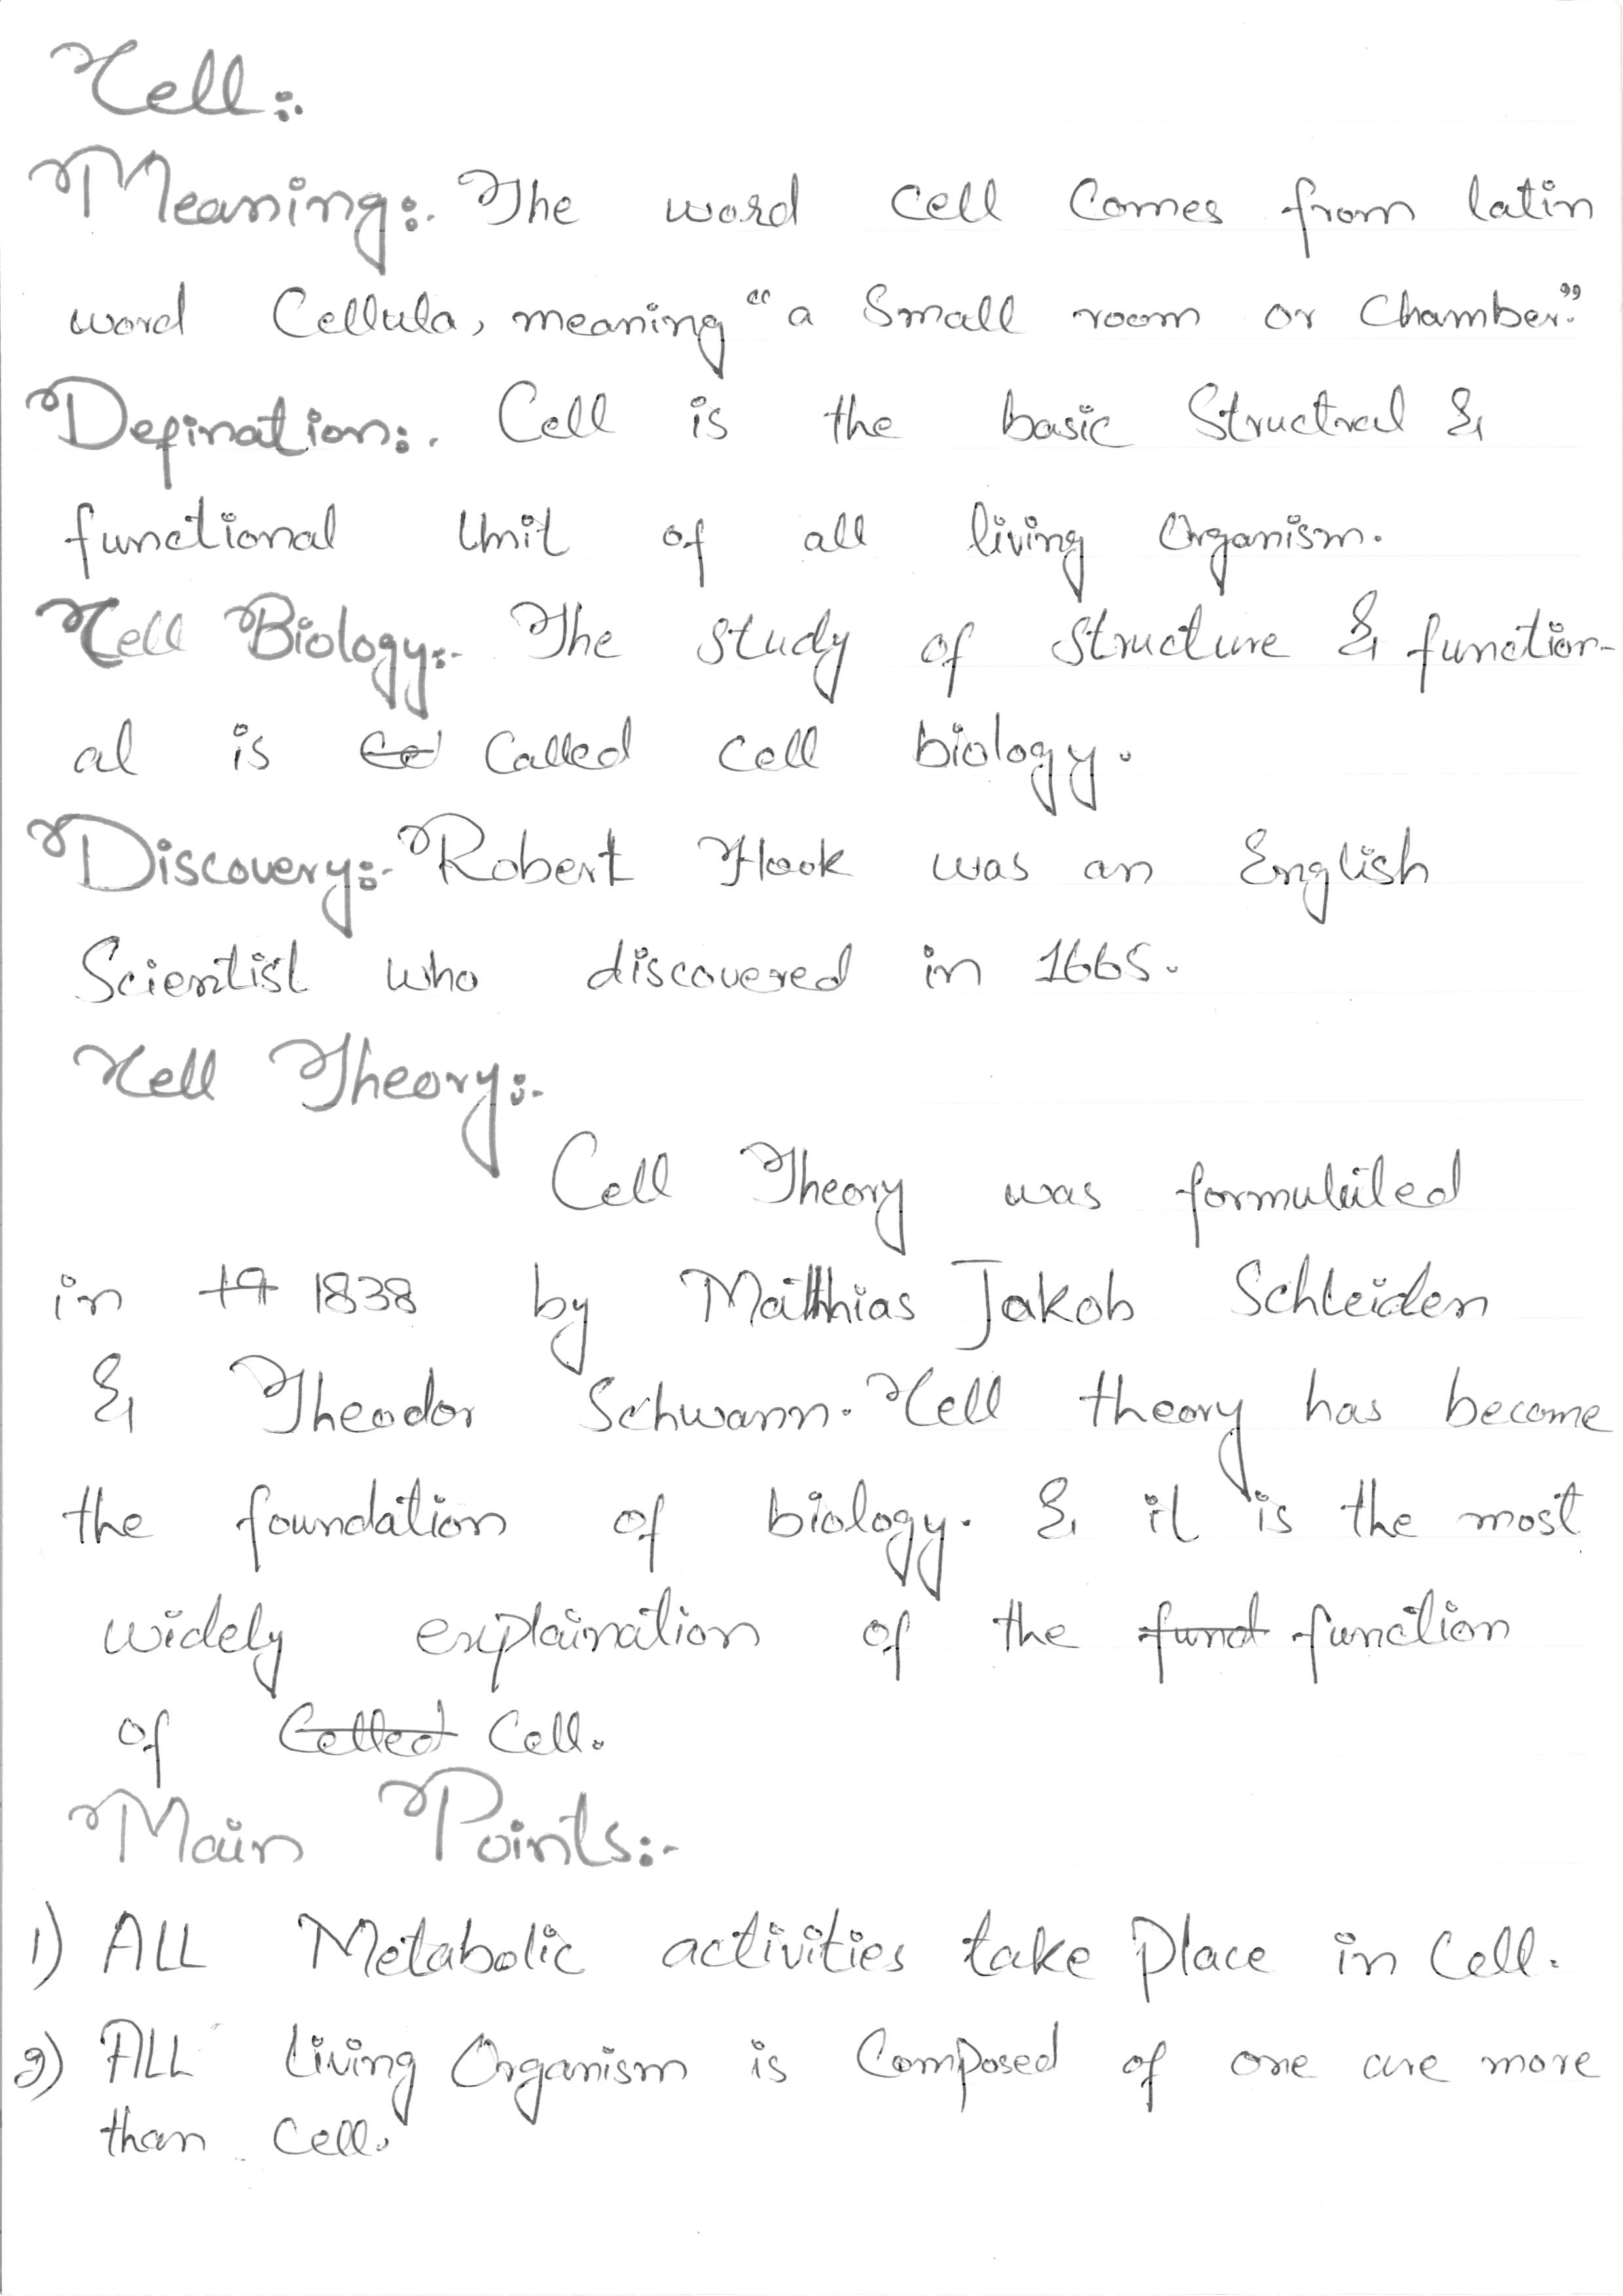 Cell:-
Meaning:- The word cell Comes from latin
word Cellula, meaning "a Small room or Chamber."
Defination:- Cell is the basic Structral &
functional Unit of all living Organism.
Cell Biology:- The study of structure & function-
al is Called cell biology.
Discovery:- Robert Hook was an English
Scientist who discovered in 1665.
Cell Theory:-
Cell Theory was formulated
in 1838 by Matthias Jakob Schleiden
& Theodor Schwann. Cell theory has become
the foundation of biology. & it is the most
widely explaination of the funct function
of Celled Cell.
Main Points:-
1) ALL Metabolic activities take Place in Cell.
2) ALL living Organism is Composed of one are more
than Cell.